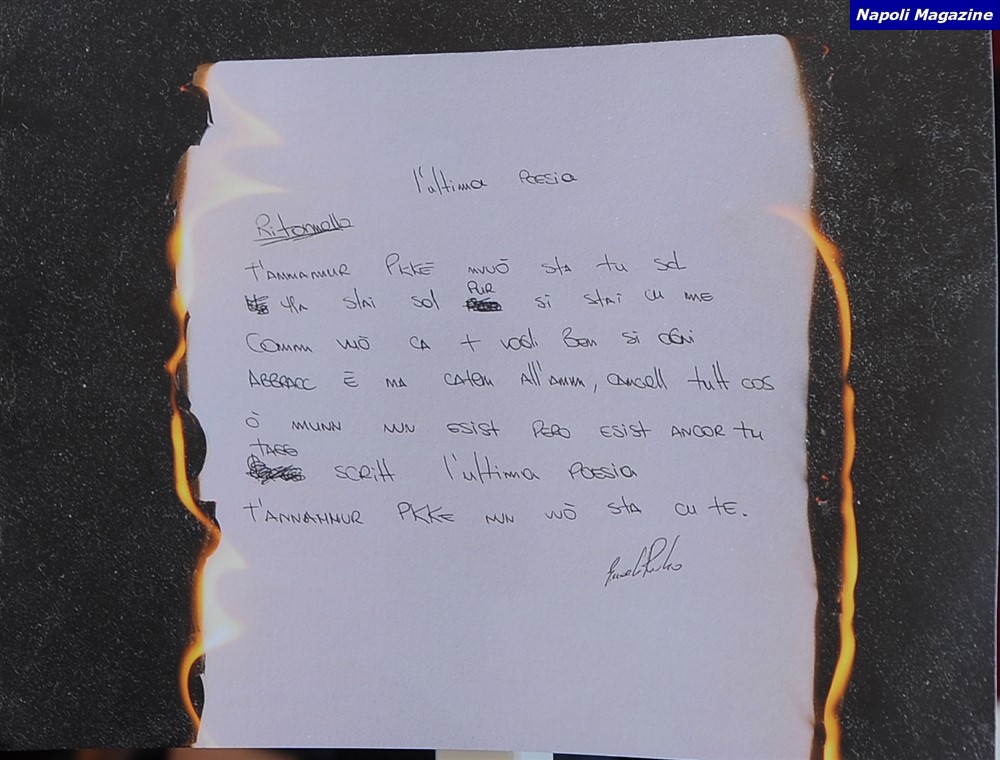 Napoli Magazine
l'ultima POESIA
Ritornello
T'ANNAMMUR PKKÈ STA TU SOL
STAI SOL PUR SI STAI CU ME
COMM VUÒ CA + vogli Ben SI OGNI
ABBRACC È NA CATEN All'ANM, CANCEll TUTT COS
Ò MUNN NUN ESIST PERO ESIST ANCOR TU
T'AGG
SCRITT l'ultima POESIA
T'ANNAMMUR PKKE NUN VUÒ STA CU TE.